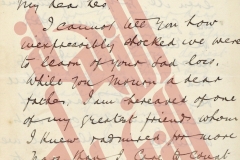 My dear Les
I cannot tell you how
inexpressibly shocked we were
to learn of your sad loss.
While you mourn a dear
father, I am bereaved of one
of my greatest friends whom
I knew & admired for more
years than I care to count